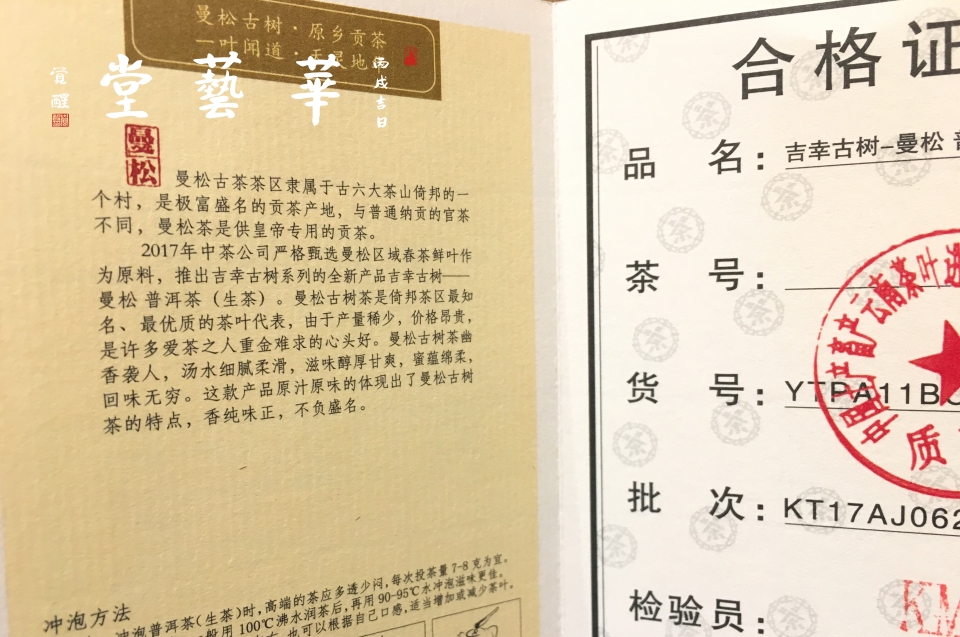 曼松古树·原乡贡茶
一叶闻道·
地
華藝堂
丙戌吉日
覚醒
曼松
曼松古茶茶区隶属于古六大茶山倚邦的一
个村，是极富盛名的贡茶产地，与普通纳贡的官茶
不同，曼松茶是供皇帝专用的贡茶。
2017年中茶公司严格甄选曼松区域春茶鲜叶作
为原料，推出吉幸古树系列的全新产品吉幸古树——
曼松 普洱茶（生茶）。曼松古树茶是倚邦茶区最知
名、最优质的茶叶代表，由于产量稀少，价格昂贵，
是许多爱茶之人重金难求的心头好。曼松古树茶幽
香袭人，汤水细腻柔滑，滋味醇厚甘爽，蜜蕴绵柔，
回味无穷。这款产品原汁原味的体现出了曼松古树
茶的特点，香纯味正，不负盛名。
冲泡方法
冲泡普洱茶（生茶）时，高端的茶应多透少闷，每次投茶量7-8克为宜。
般用100℃沸水润茶后，再用90-95℃水冲泡滋味更佳。
也可以根据自己口感，适当增加或减少茶叶，
合格证
品 名：吉幸古树-曼松
茶 号：
货 号：YTPA11B
批 次：KT17AJ062
检验员：
KM
中国土产畜产云南茶叶
质